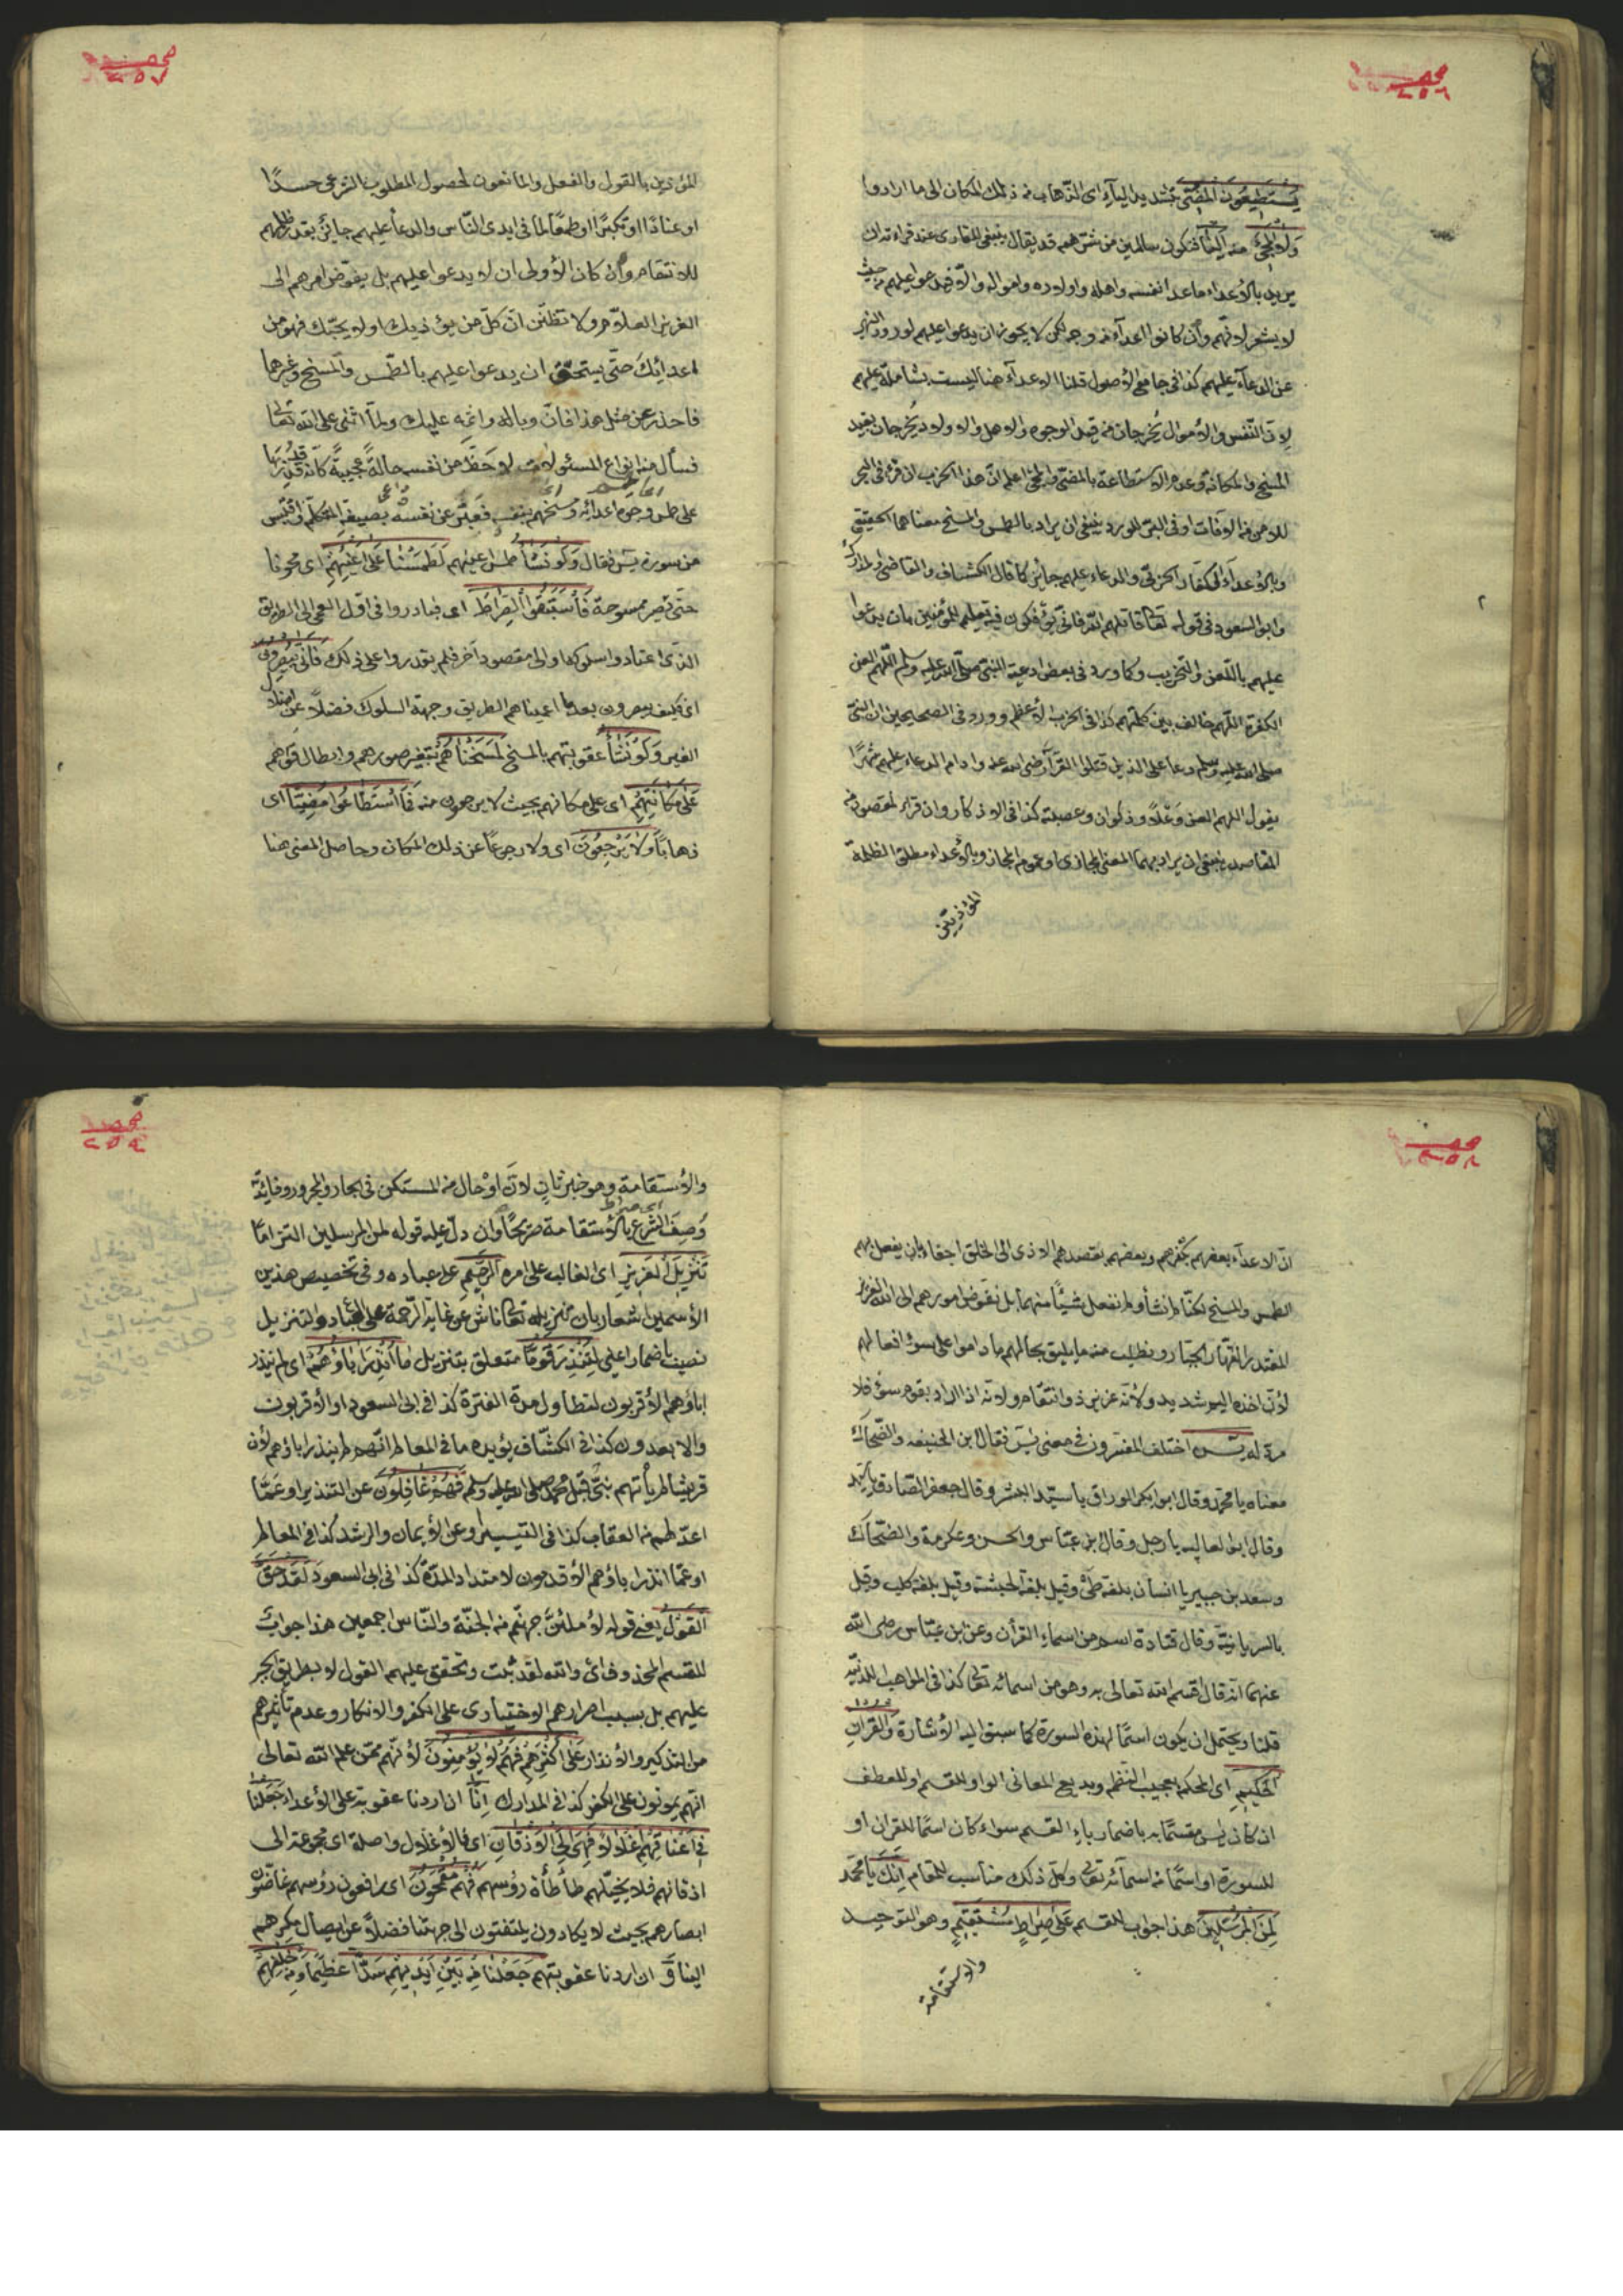 صحيفه
٢٥٦
يَسْتَطِيعُونَ المُضِيَّ بتشديد الياء اى الذهاب من ذلك المكان الى ما ارادوا
وَلاَ المَجِئَ منه اِلَيْنَا فنكون سالمين من شرهم قد يقال ينبغى للقارى عند قراءته ان
يريد بالاعداء ماعدا نفسه واهله واولاده وامواله والا فيدعوا عليهم من حيث
لا يشعر لانهم وان كانوا اعداء من وجه لكن لا يجوز ان يدعوا عليهم لورود النهى
عن الدعاء عليهم كذا فى جامع الاصول قلنا الاعداء هنا ليست بشاملة عليهم
لان النفس والاموال تخرجان من قيد الوجوه والاهل والاولاد يخرجان بقيد
المسخ والمكانة وعدم الاستطاعة بالمضى والمجئ اعلم ان هذا الحزب ان قرئ فى البحر
للامن من الافات او فى البر للورد ينبغى ان يراد بالطمس والمسخ معناهما الحقيقى
وبالاعداء الكفار الحربى والدعاء عليهم جائز كما قال الكشاف والقاضى والمدارك
وابو السعود فى قوله تعالى قاتلهم الله فانى يؤفكون فيه تعليم للمؤمنين بان يدعوا
عليهم باللعن والتخريب وكما ورد فى بعض ادعية النبى صلى الله عليه وسلم اللهم العن
الكفرة اللهم خالف بين كلمتهم كذا فى الحزب الاعظم وورد فى الصحيحين ان النبى
صلى الله عليه وسلم دعا على الذين قتلوا القراء رضى الله عنه وادام الدعاء عليهم شهرا
يقول اللهم العن وعلا وذكوان وعصية كذا فى الاذكار وان قرئ لمقصود من
المقاصد ينبغى ان يراد بهما المعنى المجازى او عموم المجاز وبالاعداء مطلق الظلمة
المؤذيين
صحيفه
٢٥٧
المؤذين بالقول والفعل والمانعون لحصول المطلوب الشرعى حسدًا
او عنادًا او تكبرًا او طمعًا لما فى ايدى الناس والدعاء عليهم جائز بقدر ظلمهم
للانتقام وان كان الاولى ان لا يدعوا عليهم بل يفوض امرهم الى
العزيز العلام ولا تظنن ان كل من يؤذيك او لا يحبك فهو من
اعدائك حتى يستحق ان يدعوا عليهم بالطمس والمسخ وغيرهما
فاحذر عن مثل هذا فان وباله واثمه عليك ولما اثنى على الله تعالى
فسأل منه انواع المسئولات لاحظ من نفسه حالة عجيبة كأنه قدر بها
على طمس وجوه اعدائه ومسخهم بنفسه فعبر عن نفسه بصيغة المتكلم واقتبس
من سورة يس فقال وَلَوْ نَشَاءُ طمس اعينهم لَطَمَسْنَا عَلَى اَعْيُنِهِمْ اى محونا
حتى تصير ممسوحة فَاسْتَبَقُوا الصِّرَاطَ اى فبادروا فى اول العمى الى الطريق
الذى اعتادوا سلوكها والى مقصود آخر فلم يقدروا على ذلك فَاَنَّى يُبْصِرُونَ
اى فكيف يبصرون بعد ما اعميناهم الطريق وجهة السلوك فضلا عن اضلال
الغير وَلَوْ نَشَاءُ عقوبتهم بالمسخ لَمَسَخْنَاهُمْ بتغيير صورهم وابطال قوهم
عَلَى مَكَانَتِهِمْ اى على مكانهم بحيث لا يرجعون منه فَمَا اسْتَطَاعُوا مُضِيًّا اى
ذهابًا وَلاَ يَرْجِعُونَ اى ولا رجوعًا عن ذلك المكان وحاصل المعنى هنا
صحيفه
٢٥٨
ان الاعداء بعضهم بكفرهم وبعضهم بقصدهم الاذى الى الخلق احقاء بان يفعل بهم
الطمس والمسخ لكنا لم نشأ ولم نفعل شيئًا منهما بل نفوض امورهم الى الله العزيز
المقتدر القهار الجبار ونطلب منه ما يليق بحالهم ما داموا على سوء افعالهم
لان اخذه اليم شديد ولانه عزيز ذو انتقام ولانه اذا اراد بقوم سوء فلا
مرد له يس اختلف المفسرون فى معنى يس فقال ابن الحنيفه والضحاك
معناه يا محمد وقال ابو بكر الوراق يا سيد البشر وقال جعفر الصادق يا سيد
وقال ابو العاليه يا رجل وقال ابن عباس والحسن وعكرمة والضحاك
وسعد بن جبير يا انسان بلغة طئ وقيل بلغة الحبشة وقيل بلغة كلب وقيل
بالسريانية وقال قتادة اسم من اسماء القرأن وعن بن عباس رضى الله
عنهما انه قال اقسم الله تعالى به وهو من اسمائه تعالى كذا فى المواهب اللدنية
قلنا ويحتمل ان يكون اسمًا لهذه السورة كما سبق اليه الاشارة وَالْقُرْآنِ
الْحَكِيمِ اى المحكم بعجيب النظم وبديع المعانى الواو للقسم او للعطف
ان كان يس مقسمًا به باضمار باء القسم سواء كان اسمًا للقرأن او
للسورة او اسمًا من اسمائه تعالى وكل ذلك مناسب للمقام اِنَّكَ يا محمد
لَمِنَ الْمُرْسَلِينَ هذا جواب القسم عَلَى صِرَاطٍ مُسْتَقِيمٍ وهو التوحيد
والاستقامة
صحيفه
٢٥٩
والاستقامة وهو خبر ثان لانّ او حال من المستكن فى الجار والمجرور وفائدة
وصف الشرع بالاستقامة صريحًا وان دل عليه قوله لمن المرسلين التزامًا
اى صراط
تَنْزِيلَ الْعَزِيزِ اى الغالب على امره الرَّحِيمِ على عباده وفى تخصيص هذين
الاسمين اشعار بان تنزيله تعالى ناش عن غاية الرحمة على العباد والتنزيل
نصب باضمار اعنى لِتُنْذِرَ قَوْمًا متعلق بتنزيل مَا اُنْذِرَ آبَاؤُهُمْ اى لم ينذر
اباؤهم الاقربون لتطاول مدة الفترة كذا فى ابى السعود او الاقربون
والابعدون كذا فى الكشاف يؤيده ما فى المعالم انهم لم ينذر اباؤهم لان
قريشًا لم يأتهم نبى قبل محمد صلى الله عليه وسلم فَهُمْ غَافِلُونَ عن التنذير او عما
اعد لهم من العقاب كذا فى التيسير او عن الايمان والرشد كذا فى المعالم
او عما انذر اباؤهم الاقدمون لامتداد المدة كذا فى ابى السعود لَقَدْ حَقَّ
الْقَوْلُ يعنى قوله لاملئن جهنم من الجنة والناس اجمعين هذا جواب
للقسم المحذوف اى والله لقد ثبت وتحقق عليهم القول لا بطريق الجبر
عليهم بل بسبب اصرارهم الاختيارى على الكفر والانكار وعدم تأثرهم
من التذكير والانذار عَلَى اَكْثَرِهِمْ فَهُمْ لاَ يُؤْمِنُونَ لانهم ممن علم الله تعالى
انهم يموتون على الكفر كذا فى المدارك اِنَّا ان اردنا عقوبة على الاعداء جَعَلْنَا
فِى اَعْنَاقِهِمْ اَغْلاَلاً فَهِىَ اِلَى الاَذْقَانِ اى فالاغلال واصلة اى مجموعة الى
اذقانهم فلا يخليهم طأطأة رؤسهم فَهُمْ مُقْمَحُونَ اى رافعون رؤسهم غاضون
ابصارهم بحيث لا يكادون يلتفتون الى جهتنا فضلا عن ايصال مكرهم
الينا وَ ان اردنا عقوبتهم جَعَلْنَا مِنْ بَيْنِ اَيْدِيهِمْ سَدًّا عظيمًا وَمِنْ خَلْفِهِمْ